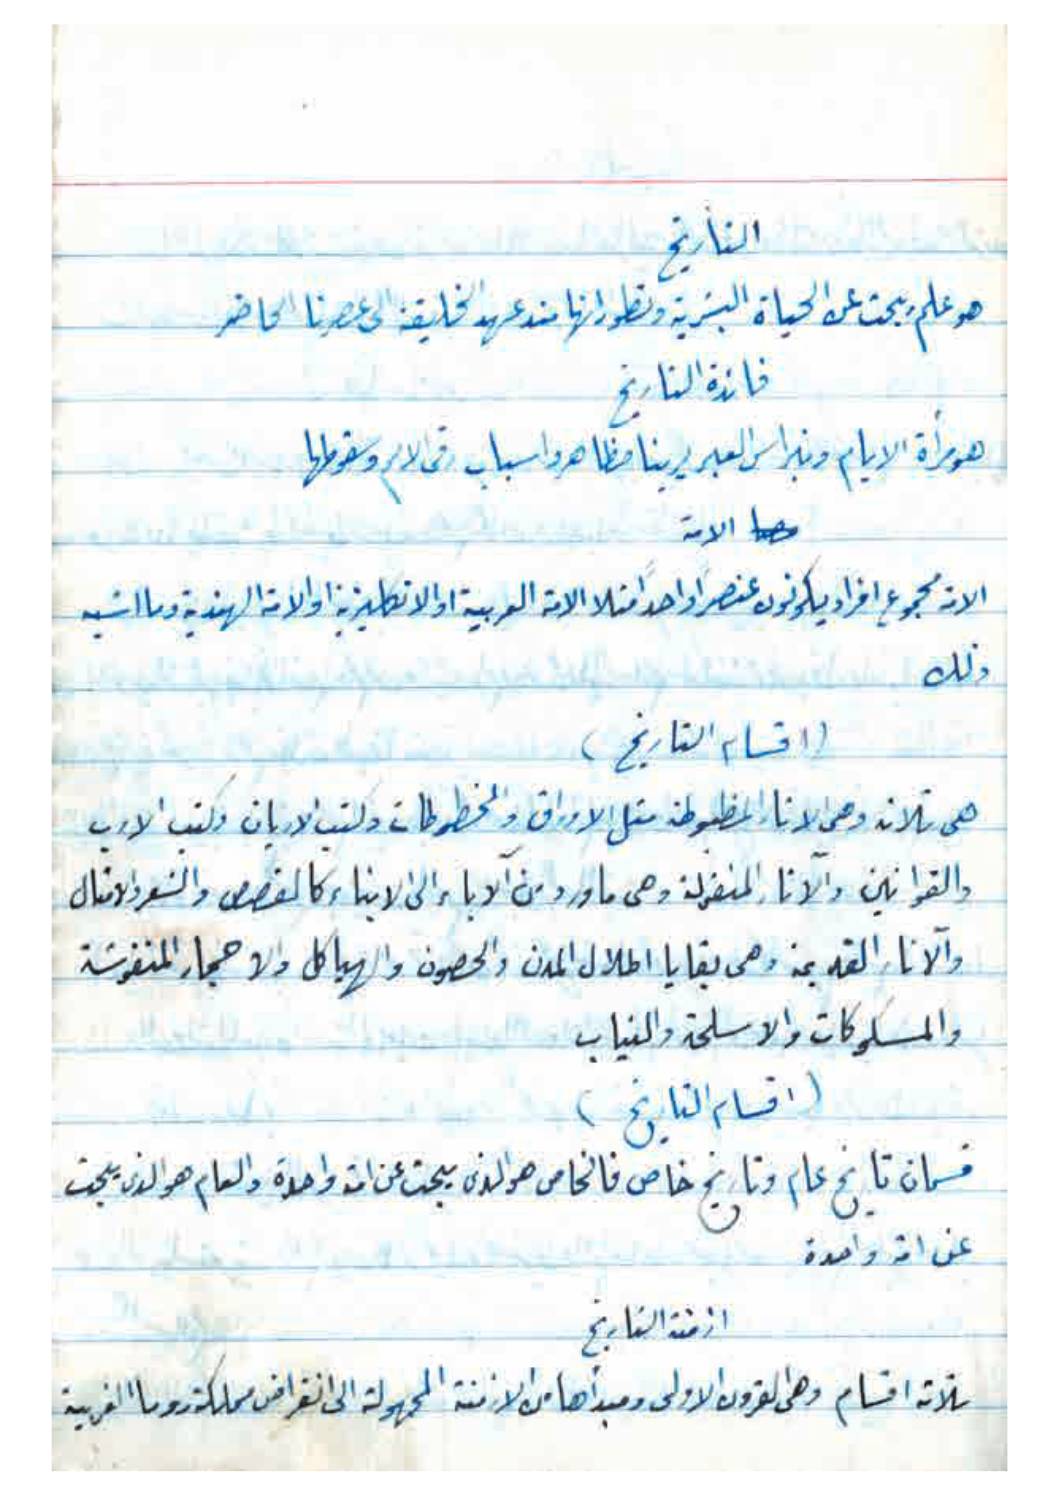 التأريخ
هو علم يبحث عن الحياة البشرية وتطوراتها منذ عهد الخليقة الى عصرنا الحاضر
فائدة التاريخ
هو مرأة الايام ونبراس العبر يرينا مظاهر واسباب رقى الامم وسقوطها
الامة
الامة مجموع افراد يكونون عنصراً واحداً مثلا الامة العربية او الانكليزية او الامة الهندية وما اشبه
ذلك
(اقسام التاريخ)
هى ثلاثة وهى الاثار المخطوطة مثل الاوراق والمخطوطات وكتب الاديان وكتب الادب
والقوانين والآثار المنقولة وهى ما ورد من الآباء الى الابناء كالقصص والشعر والامثال
والآثار القديمة وهى بقايا اطلال المدن والحصون والهياكل والاحجار المنقوشة
والمسكوكات والاسلحة والثياب
(اقسام التاريخ)
قسمان تاريخ عام وتاريخ خاص فالخاص هو الذى يبحث عن امة واحدة والعام هو الذى يبحث
عن امة واحدة
ازمنة التاريخ
ثلاثة اقسام وهى القرون الاولى ومبدأها من الازمنة المجهولة الى انقراض مملكة روما الغربية